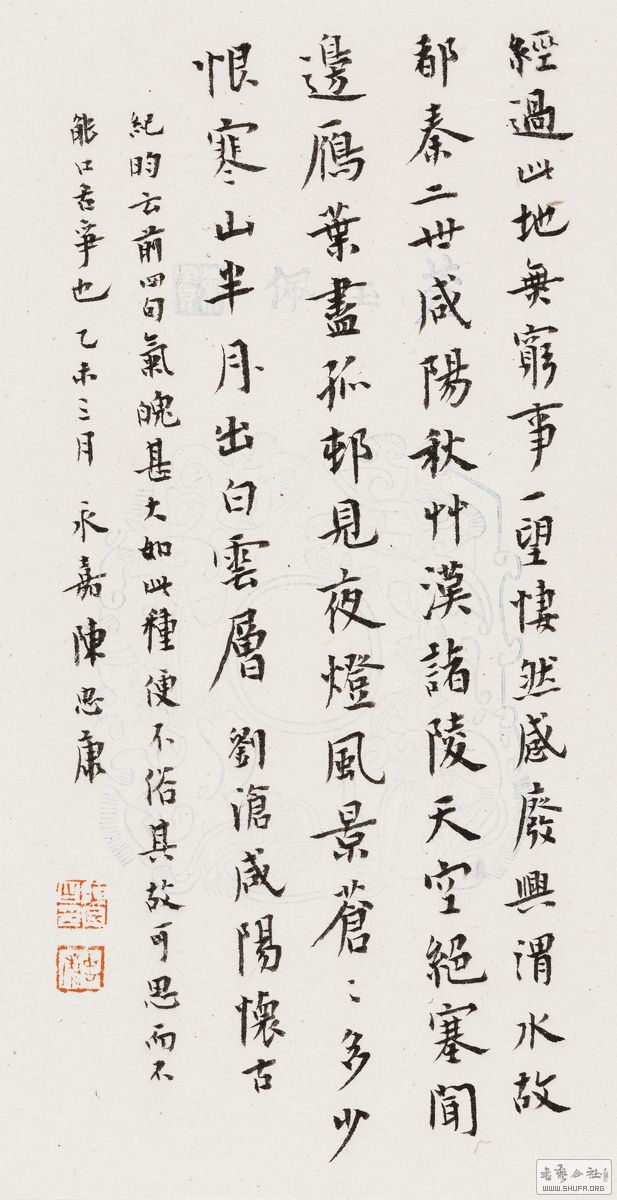 經過此地無窮事一望悽然感廢興渭水故
都秦二世咸陽秋艸漢諸陵天空絕塞聞
邊鴈葉盡孤邨見夜燈風景蒼〻多少
恨寒山半月出白雲層 劉滄咸陽懷古
紀昀云前四句氣魄甚大如此種便不俗其故可思而不
能口舌爭也乙未三月 永嘉陳思康
書藝公社
WWW.SHUFA.ORG